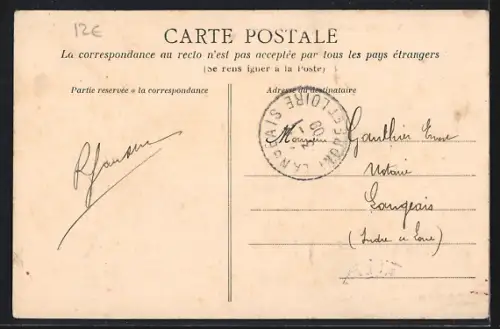 12€
CARTE POSTALE
La correspondance au recto n'est pas acceptée par tous les pays étrangers
(Se rens igner à la Poste)
Partie reservée a la correspondance
Adresse du destinataire
LANGEAIS
ET LOIRE
Monsieur Gauthier
Notaire
Langeais
(Indre et Loire)